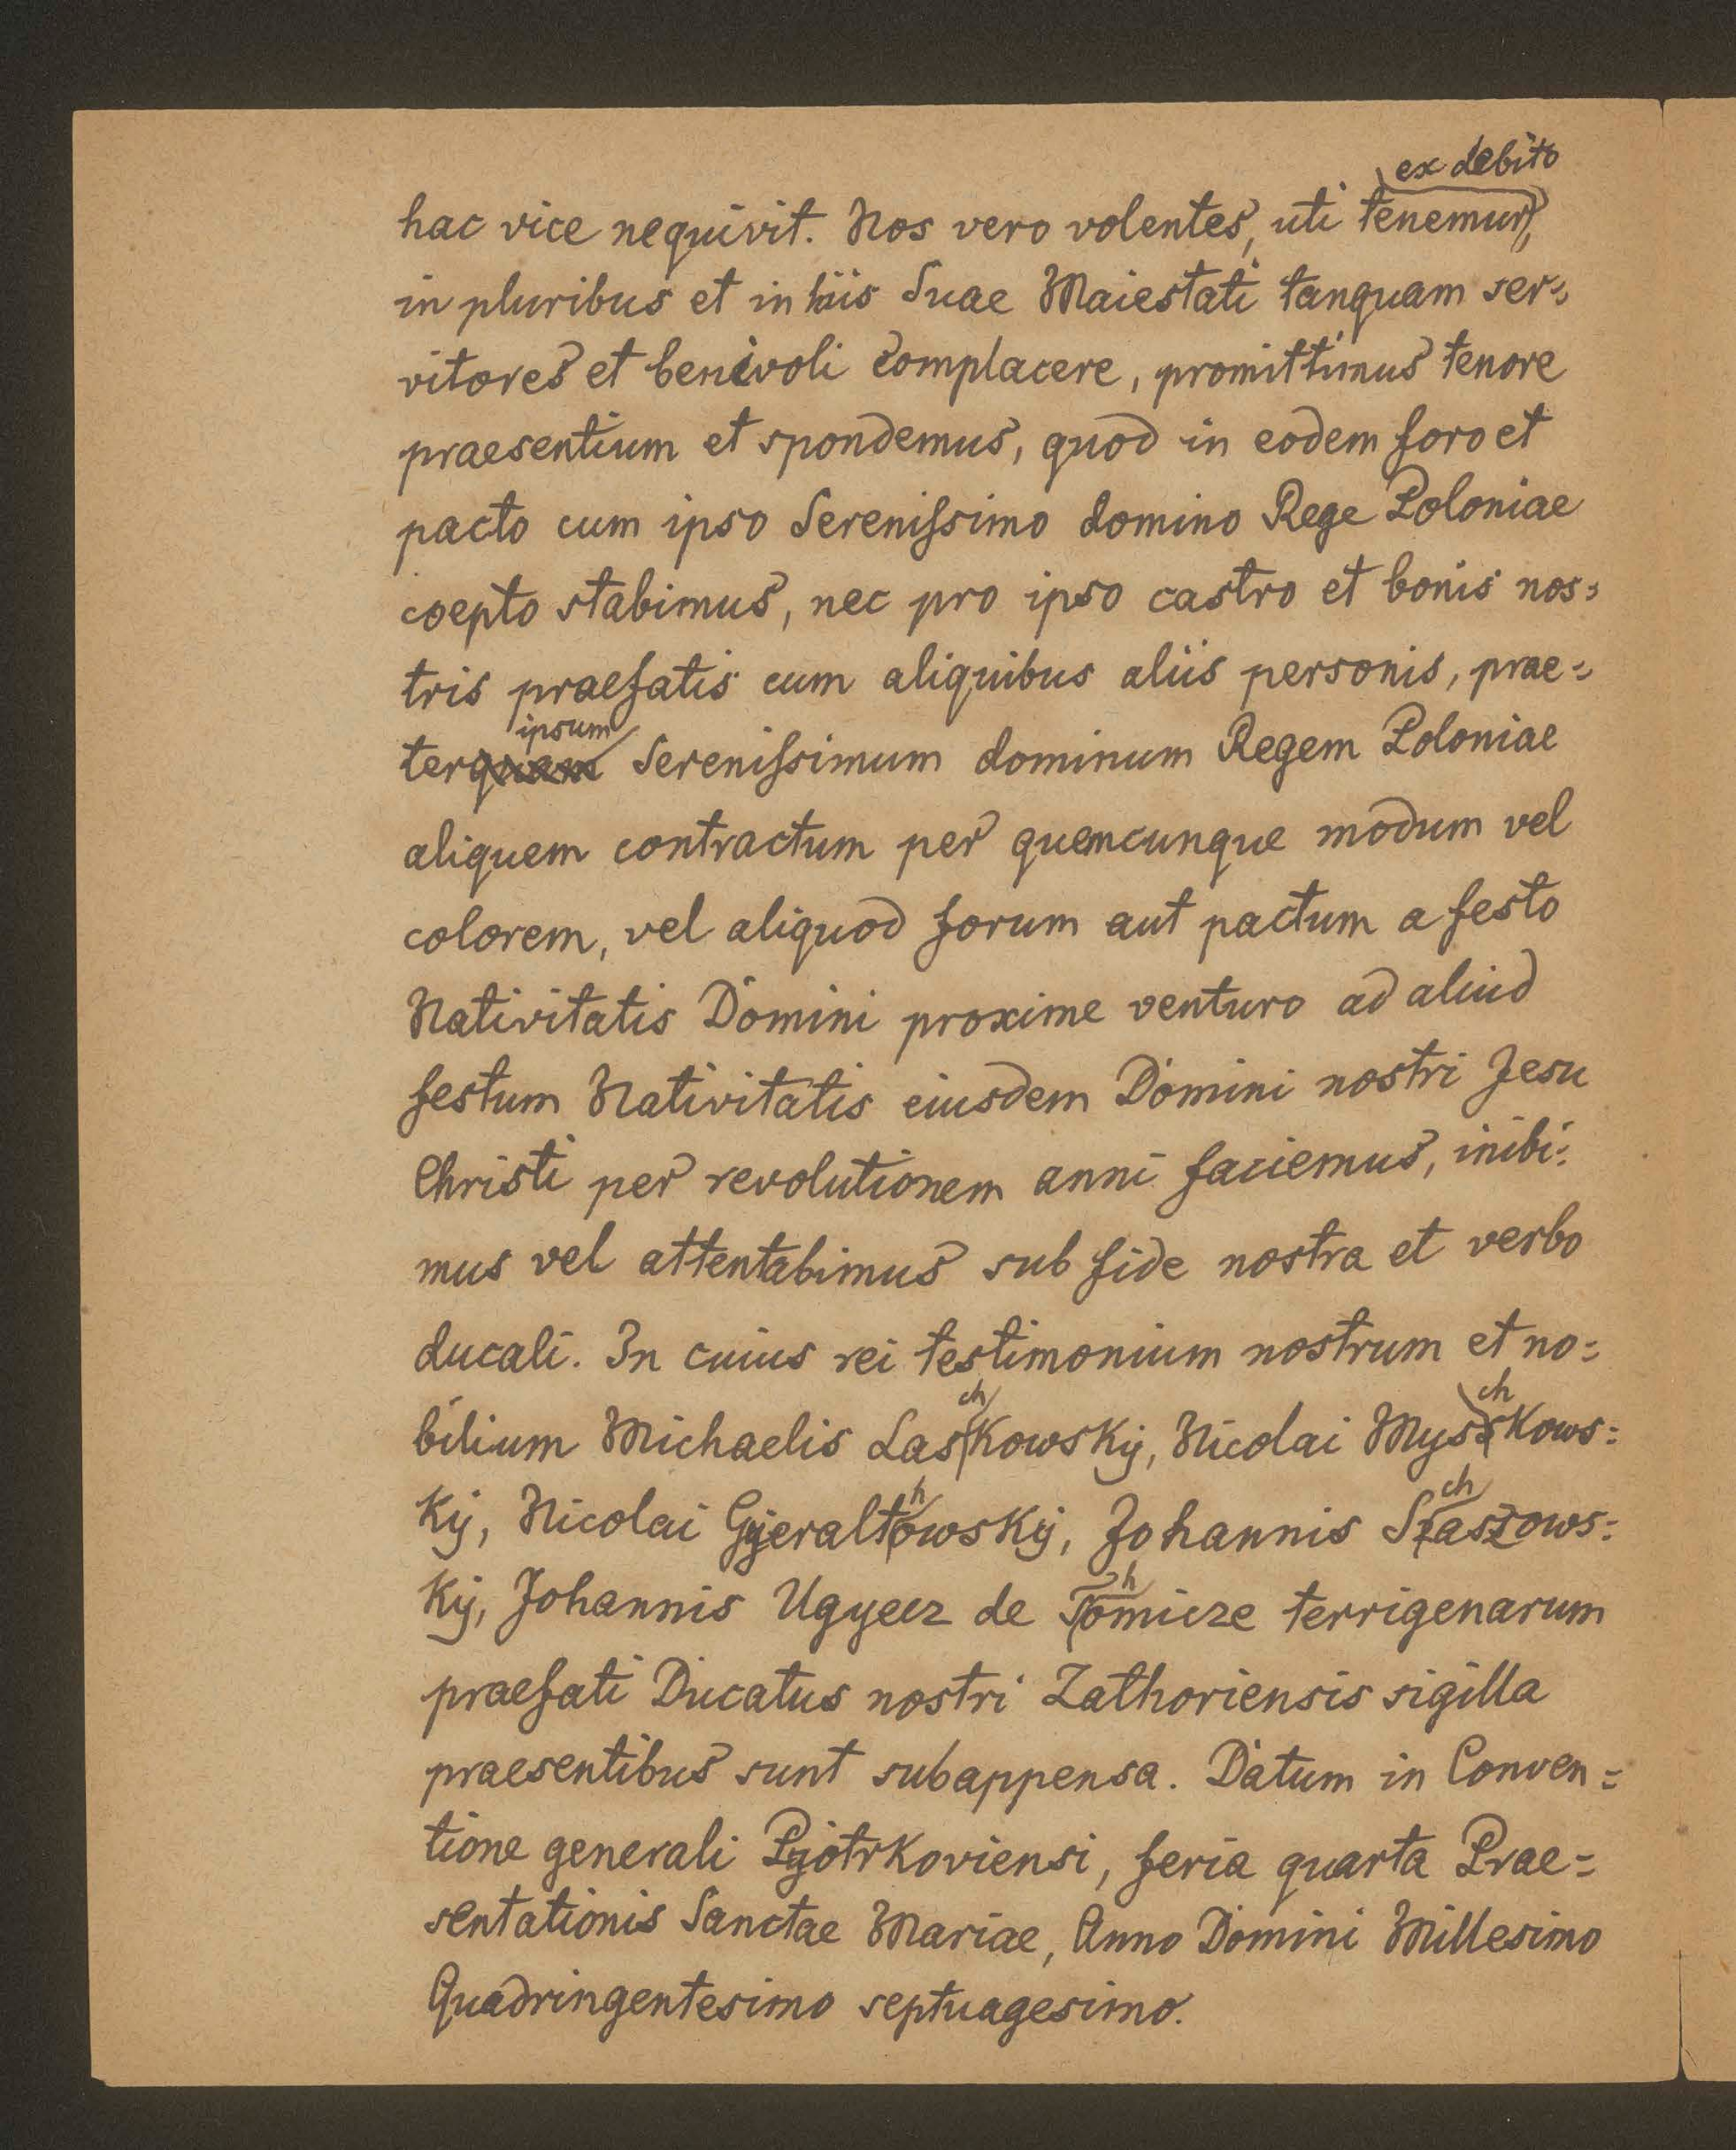 ex debito
hac vice nequivit. Nos vero volentes, uti tenemur,
in pluribus et in hiis Suae Maiestati tanquam ser=
vitores et benivoli complacere, promittimus tenore
praesentium et spondemus, quod in eodem foro et
pacto cum ipso Serenissimo domino Rege Poloniae
coepto stabimus, nec pro ipso castro et bonis nos=
tris praefatis cum aliquibus aliis personis, prae=
ipsum
terquam Serenissimum dominum Regem Poloniae
aliquem contractum per quemcunque modum vel
colorem, vel aliquod forum aut pactum a festo
Nativitatis Domini proxime venturo ad aliud
festum Nativitatis eiusdem Domini nostri Jesu
Christi per revolutionem anni faciemus, inibi=
mus vel attentabimus sub fide nostra et verbo
ducali. In cuius rei testimonium nostrum et no=
ch ch
bilium Michaelis Laskowsky, Nicolai Mysskows=
h ch
ky, Nicolai Gyeraltowsky, Johannis Staszows=
h
ky, Johannis Ugyecz de Tomicze terrigenarum
praefati Ducatus nostri Zathoriensis sigilla
praesentibus sunt subappensa. Datum in Conven=
tione generali Pyotrkoviensi, feria quarta Prae=
sentationis Sanctae Mariae, Anno Domini Millesimo
Quadringentesimo septuagesimo.